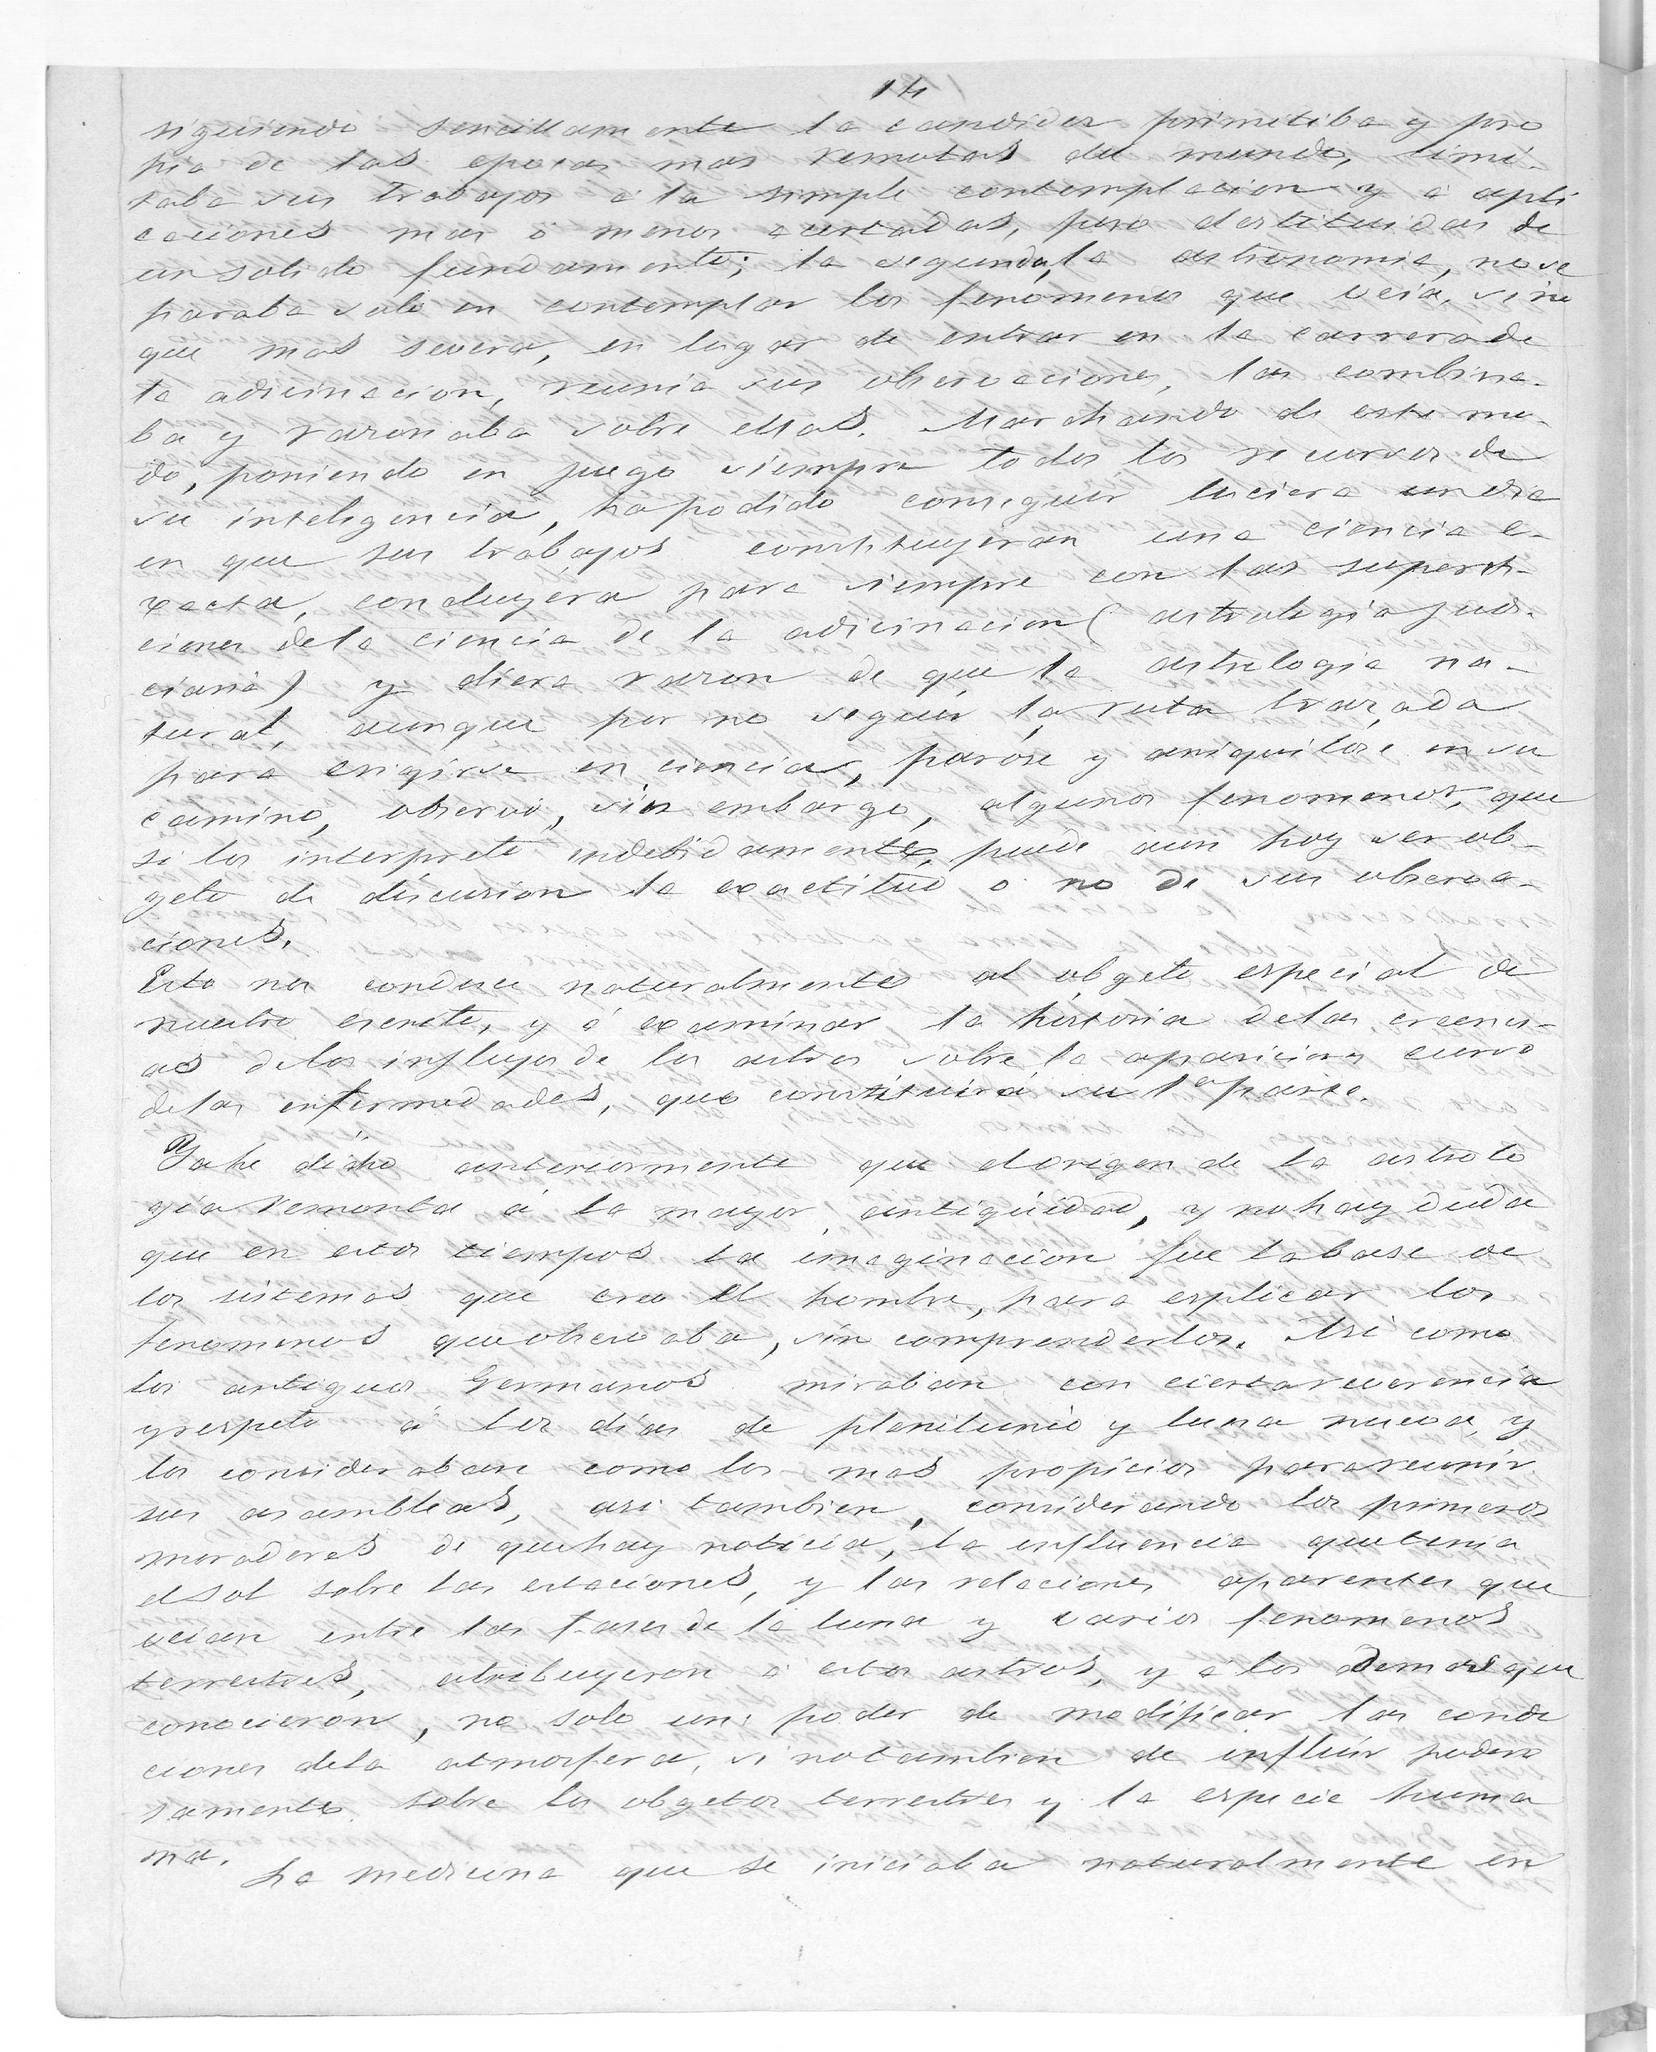 14
siguiendo sencillamente la candidez primitiba y pro
pia de las epocas mas remotas del mundo, limi-
taba sus trabajos á la simple contemplacion y á apli
caciones mas ó menos acertadas, pero destituidas de
un solido fundamento; la segunda, la astronomia, no se
paraba solo en contemplar los fenomenos que veia, sino
que mas severa, en lugar de entrar en la carrera de
la adivinacion, reunia sus observaciones, las combina-
ba y razonaba sobre ellas. Marchando de este mo-
do, poniendo en juego siempre todos los recursos de
su inteligencia, ha podido conseguir luciera un dia
en que sus trabajos constituyeran una ciencia e-
xacta, concluyera para siempre con las supersti-
ciones dela ciencia de la adivinacion (astrologia judi-
ciaria) y diera razon de que la astrologia na-
tural, aunque por no seguir la ruta trazada
para erigirse en ciencia, paróse y aniquilóse en su
camino, observó, sin embargo, algunos fenomenos, que
si los interpretó indebidamente, puede aun hoy ser ob-
geto de discusion la exactitud o no de sus observa-
ciones.
Esto nos conduce naturalmente al obgeto especial de
nuestro escrito, y á examinar la historia delas creenci-
as delos influjos de los astros sobre la aparicion y curso
delas enfermedades, que constituirá su 1ª parte.
Ya he dicho anteriormente que el origen de la astrolo
gía remonta á la mayor antigüidad, y no hay duda
que en estos tiempos la imaginacion fue la base de
los sistemas que creo el hombre, para esplicar los
fenomenos que observaba, sin comprenderlos. Asi como
los antiguos Germanos miraban con cierta reverencia
y respeto á los días de plenilunio y luna nueva, y
los consideraban como los mas propicios para reunir
sus asambleas, asi tambien, considerando los primeros
moradores de que hay noticia, la influencia que tenia
el sol sobre las estaciones, y las relaciones aparentes que
veian entre las fases de la luna y varios fenomenos
terrestres, atribuyeron á estos astros, y á los demas que
conocieron, no solo un poder de modificar las condi
ciones dela atmosfera, si no tambien de influir podero
samente sobre los obgetos terrestres y la especie huma
na.
La medicina que se iniciaba naturalmente en